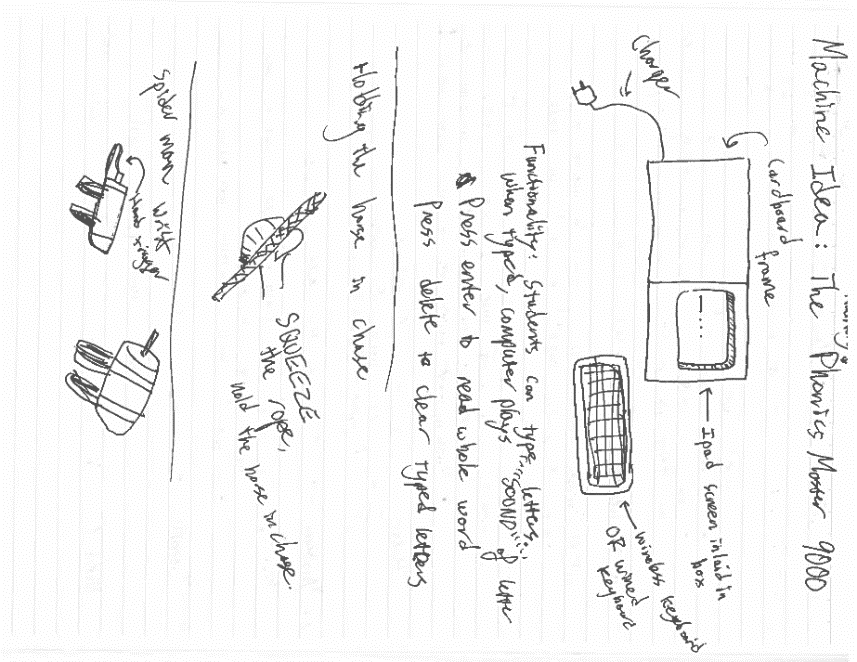 Machine Idea: The Phonics Master 9000
Charger
Cardboard
frame
Ipad screen inlaid in
box
wireless keyboard
OR wired
keyboard
Functionality: Students can type letters,
when typed, computer plays "SOUND" of letter
Press enter to read whole word
Press delete to clear typed letters
Holding the horse in chase
SQUEEZE
the rope,
hold the horse in chase.
spider man wrist